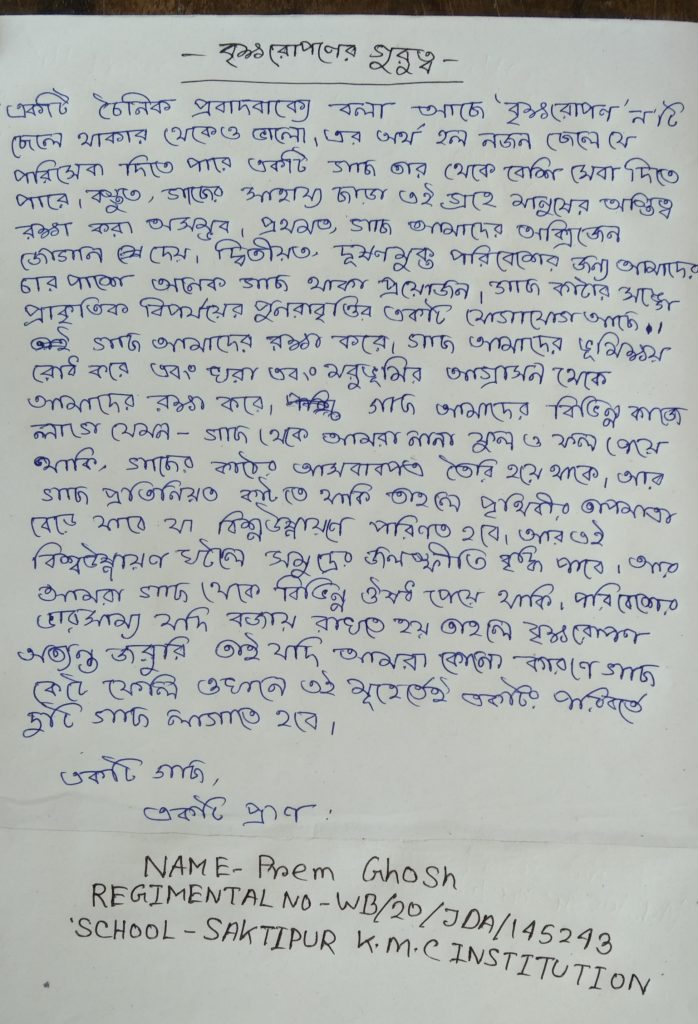 - বৃক্ষরোপণের গুরুত্ব -
একটি চৈনিক প্রবাদবাক্যে বলা আছে 'বৃক্ষরোপন' ন'টি
ছেলে থাকার থেকেও ভালো, এর অর্থ হল নজন ছেলে যে
পরিসেবা দিতে পারে একটি গাছ তার থেকে বেশি সেবা দিতে
পারে, বস্তুত, গাছের সাহায্য ছাড়া এই গ্রহে মানুষের অস্তিত্ব
রক্ষা করা অসম্ভব, প্রথমত, গাছ আমাদের অক্সিজেন
জোগান দেয়, দ্বিতীয়ত, দূষণমুক্ত পরিবেশের জন্য আমাদের
চার পাশে অনেক গাছ থাকা প্রয়োজন, গাছ কাটার সঙ্গে
প্রাকৃতিক বিপর্যয়ের পুনরাবৃত্তির একটি যোগাযোগ আছে,,
গাছ আমাদের রক্ষা করে, গাছ আমাদের ভূমিক্ষয়
রোধ করে এবং খরা এবং মরুভূমির আগ্রাসন থেকে
আমাদের রক্ষা করে, গাছ আমাদের বিভিন্ন কাজে
লাগে যেমন - গাছ থেকে আমরা নানা ফুল ও ফল পেয়ে
থাকি, গাছের কাঠের আসবাবপত্র তৈরি হয়ে থাকে, আর
গাছ প্রতিনিয়ত কাটতে থাকি তাহলে পৃথিবীর তাপমাত্রা
বেড়ে যাবে যা বিশ্বউষ্ণায়ণে পরিণত হবে, আর এই
বিশ্বউষ্ণায়ণ ঘটলে সমুদ্রের জলস্ফীতি বৃদ্ধি পাবে, আর
আমরা গাছ থেকে বিভিন্ন ঔষধ পেয়ে থাকি, পরিবেশের
ভারসাম্য যদি বজায় রাখতে হয় তাহলে বৃক্ষরোপণ
অত্যন্ত জরুরি তাই যদি আমরা কোনো কারণে গাছ
কেটে ফেলি ওখানে এই মূহূর্তেই একটির পরিবর্তে
দুটি গাছ লাগাতে হবে,
একটি গাছ,
একটি প্রাণ :
NAME- Prem Ghosh
REGIMENTAL NO - WB/20/JDA/145243
'SCHOOL - SAKTIPUR K.M.C INSTITUTION